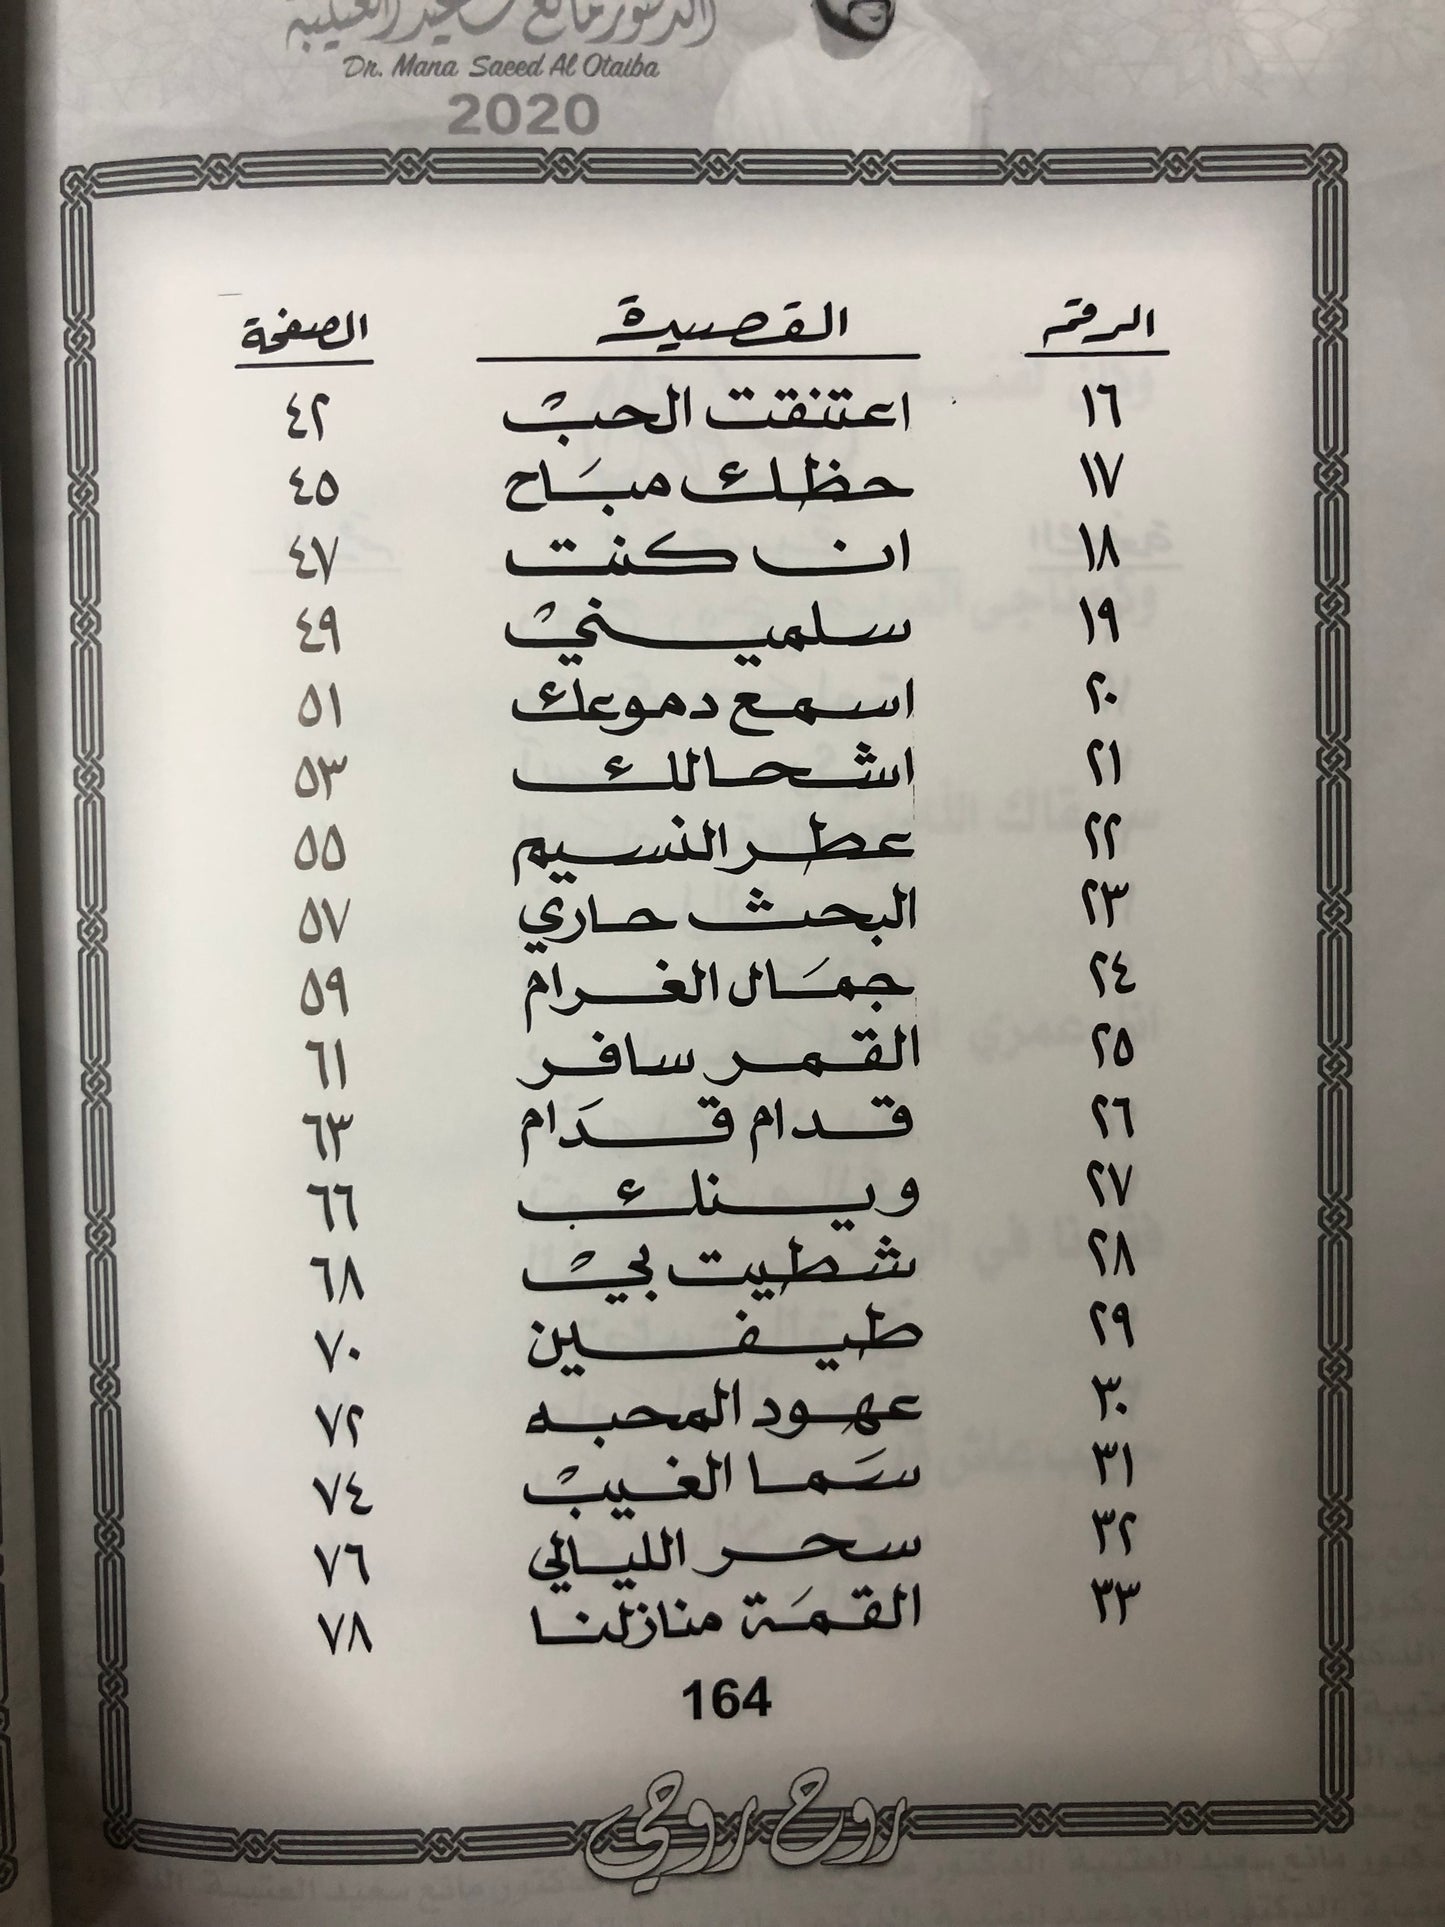 الدكتور مانع سعيد العتيبة
Dr. Mana Saeed Al Otaiba
2020
الرقم القصيدة الصفحة
١٦ اعتنقت الحبْ ٤٢
١٧ حظك مبَاح ٤٥
١٨ ان كنت ٤٧
١٩ سلمينيْ ٤٩
٢٠ اسمع دموعك ٥١
٢١ اشحالك ٥٣
٢٢ عطر النسيم ٥٥
٢٣ البحث حاري ٥٧
٢٤ جمَال الغرام ٥٩
٢٥ القمر سافر ٦١
٢٦ قدام قدَام ٦٣
٢٧ وينك ٦٦
٢٨ شطيت بيْ ٦٨
٢٩ طيفين ٧٠
٣٠ عهود المحبه ٧٢
٣١ سَما الغيبْ ٧٤
٣٢ سحر الليالي ٧٦
٣٣ القمَة منازلنا ٧٨
164
روح روحي